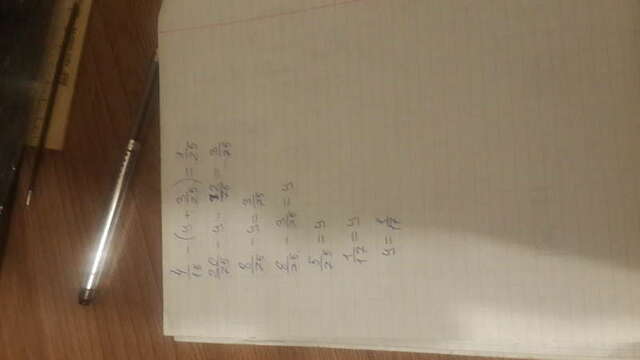 4/15 - (y + 3/25) = 1/25
20/75 - y - 12/75 = 3/75
8/75 - y = 3/75
8/75 - 3/75 = y
5/75 = y
1/17 = y
y = 1/17